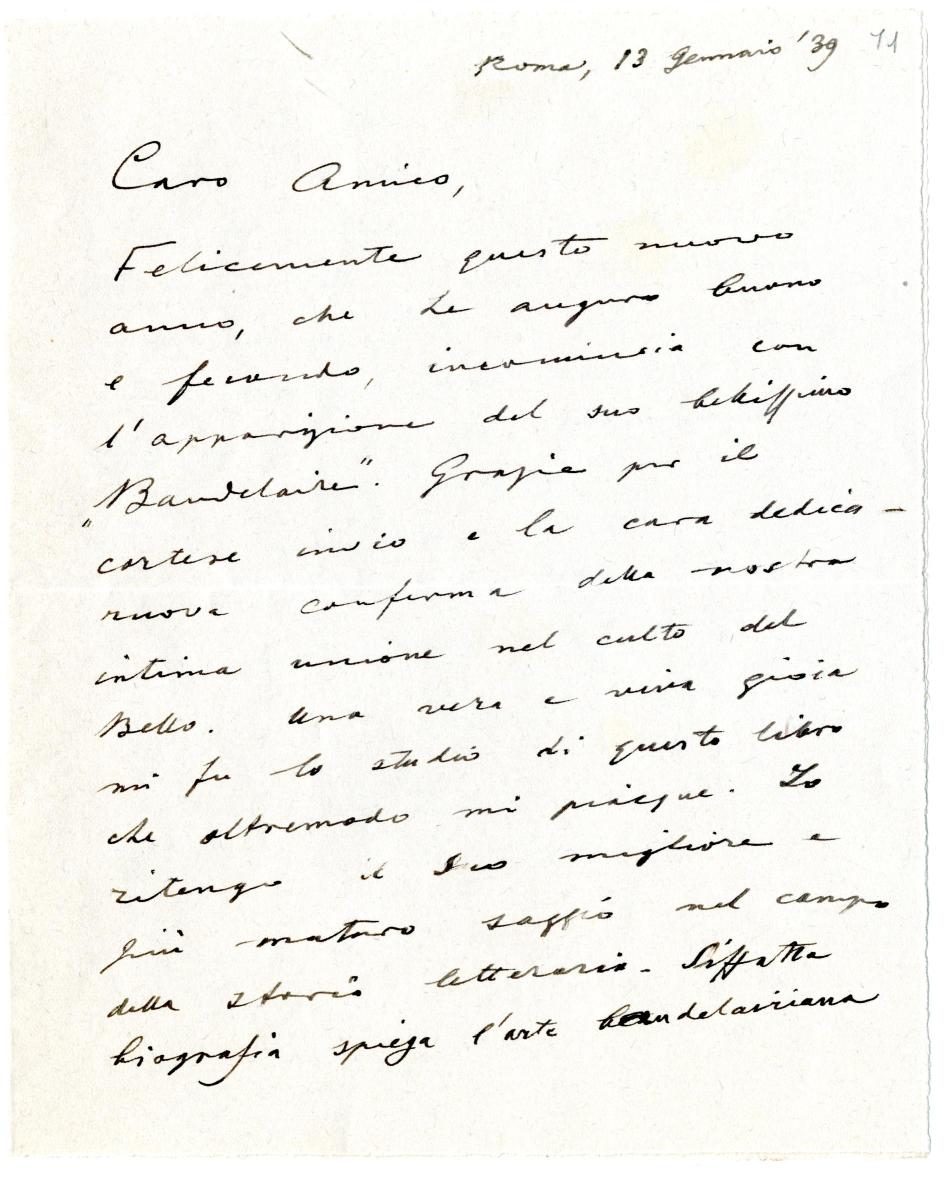 Roma, 13 Gennaio '39 71
Caro Amico,
Felicemente questo nuovo
anno, che Le auguro buono
e fecondo, incomincia con
l'apparizione del suo bellissimo
"Baudelaire". Grazie per il
cortese invio e la cara dedica -
nuova conferma della nostra
intima unione nel culto del
Bello. Una vera e viva gioia
mi fu lo studio di questo libro
che oltremodo mi piacque. Lo
ritengo il Suo migliore e
più maturo saggio nel campo
della storia letteraria. Siffatta
biografia spiega l'arte baudelairiana